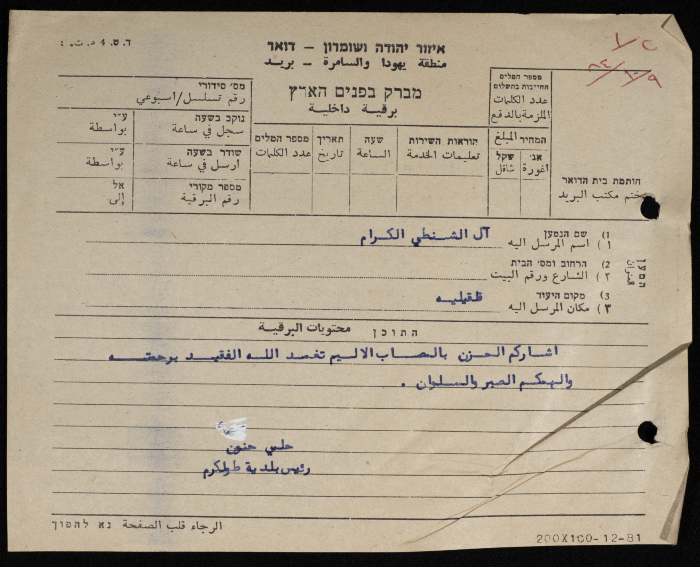 ד.ס. 4 ד.ת.
איזור יהודה ושומרון - דואר
منطقة يهودا والسامرة - بريد
מברק בפנים הארץ
برقية داخلية
מס׳ סידורי
رقم تسلسل/اسبوعي
נוקב בשעה
سجل في ساعة
ע״י
بواسطة
שודר בשעה
ارسل في ساعة
ע״י
بواسطة
מספר מקורי
رقم البرقية
אל
إلى
מספר המלים
عدد الكلمات
תאריך
تاريخ
שעה
الساعة
הוראות השירות
تعليمات الخدمة
מספר המלים
החייבות בתשלום
عدد الكلمات
الملزمة بالدفع
המחיר المبلغ
שקל
شاقل
אג׳
اغورة
חותמת בית הדואר
ختم مكتب البريد
המען
عنوان
1) שם הנמען
١) اسم المرسل اليه
آل الشنطي الكرام
2) הרחוב ומס׳ הבית
٢) الشارع ورقم البيت
3) מקום היעוד
٣) مكان المرسل اليه
قلقيليه
התוכן محتويات البرقية
اشارككم الحزن بالمصاب الاليم تغمد الله الفقيد برحمته
والهمكم الصبر والسلوان .
حلمي حنون
رئيس بلدية طولكرم
الرجاء قلب الصفحة נא להפוך
200X100-12-81